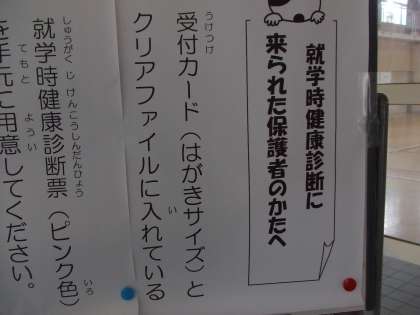 就学時健康診断に
来られた保護者のかたへ
受付カード（はがきサイズ）と
うけつけ
クリアファイルに入れている
い
就学時健康診断票（ピンク色）
しゅうがくじけんこうしんだんひょう
いろ
を手元に用意してください。
てもと
ようい